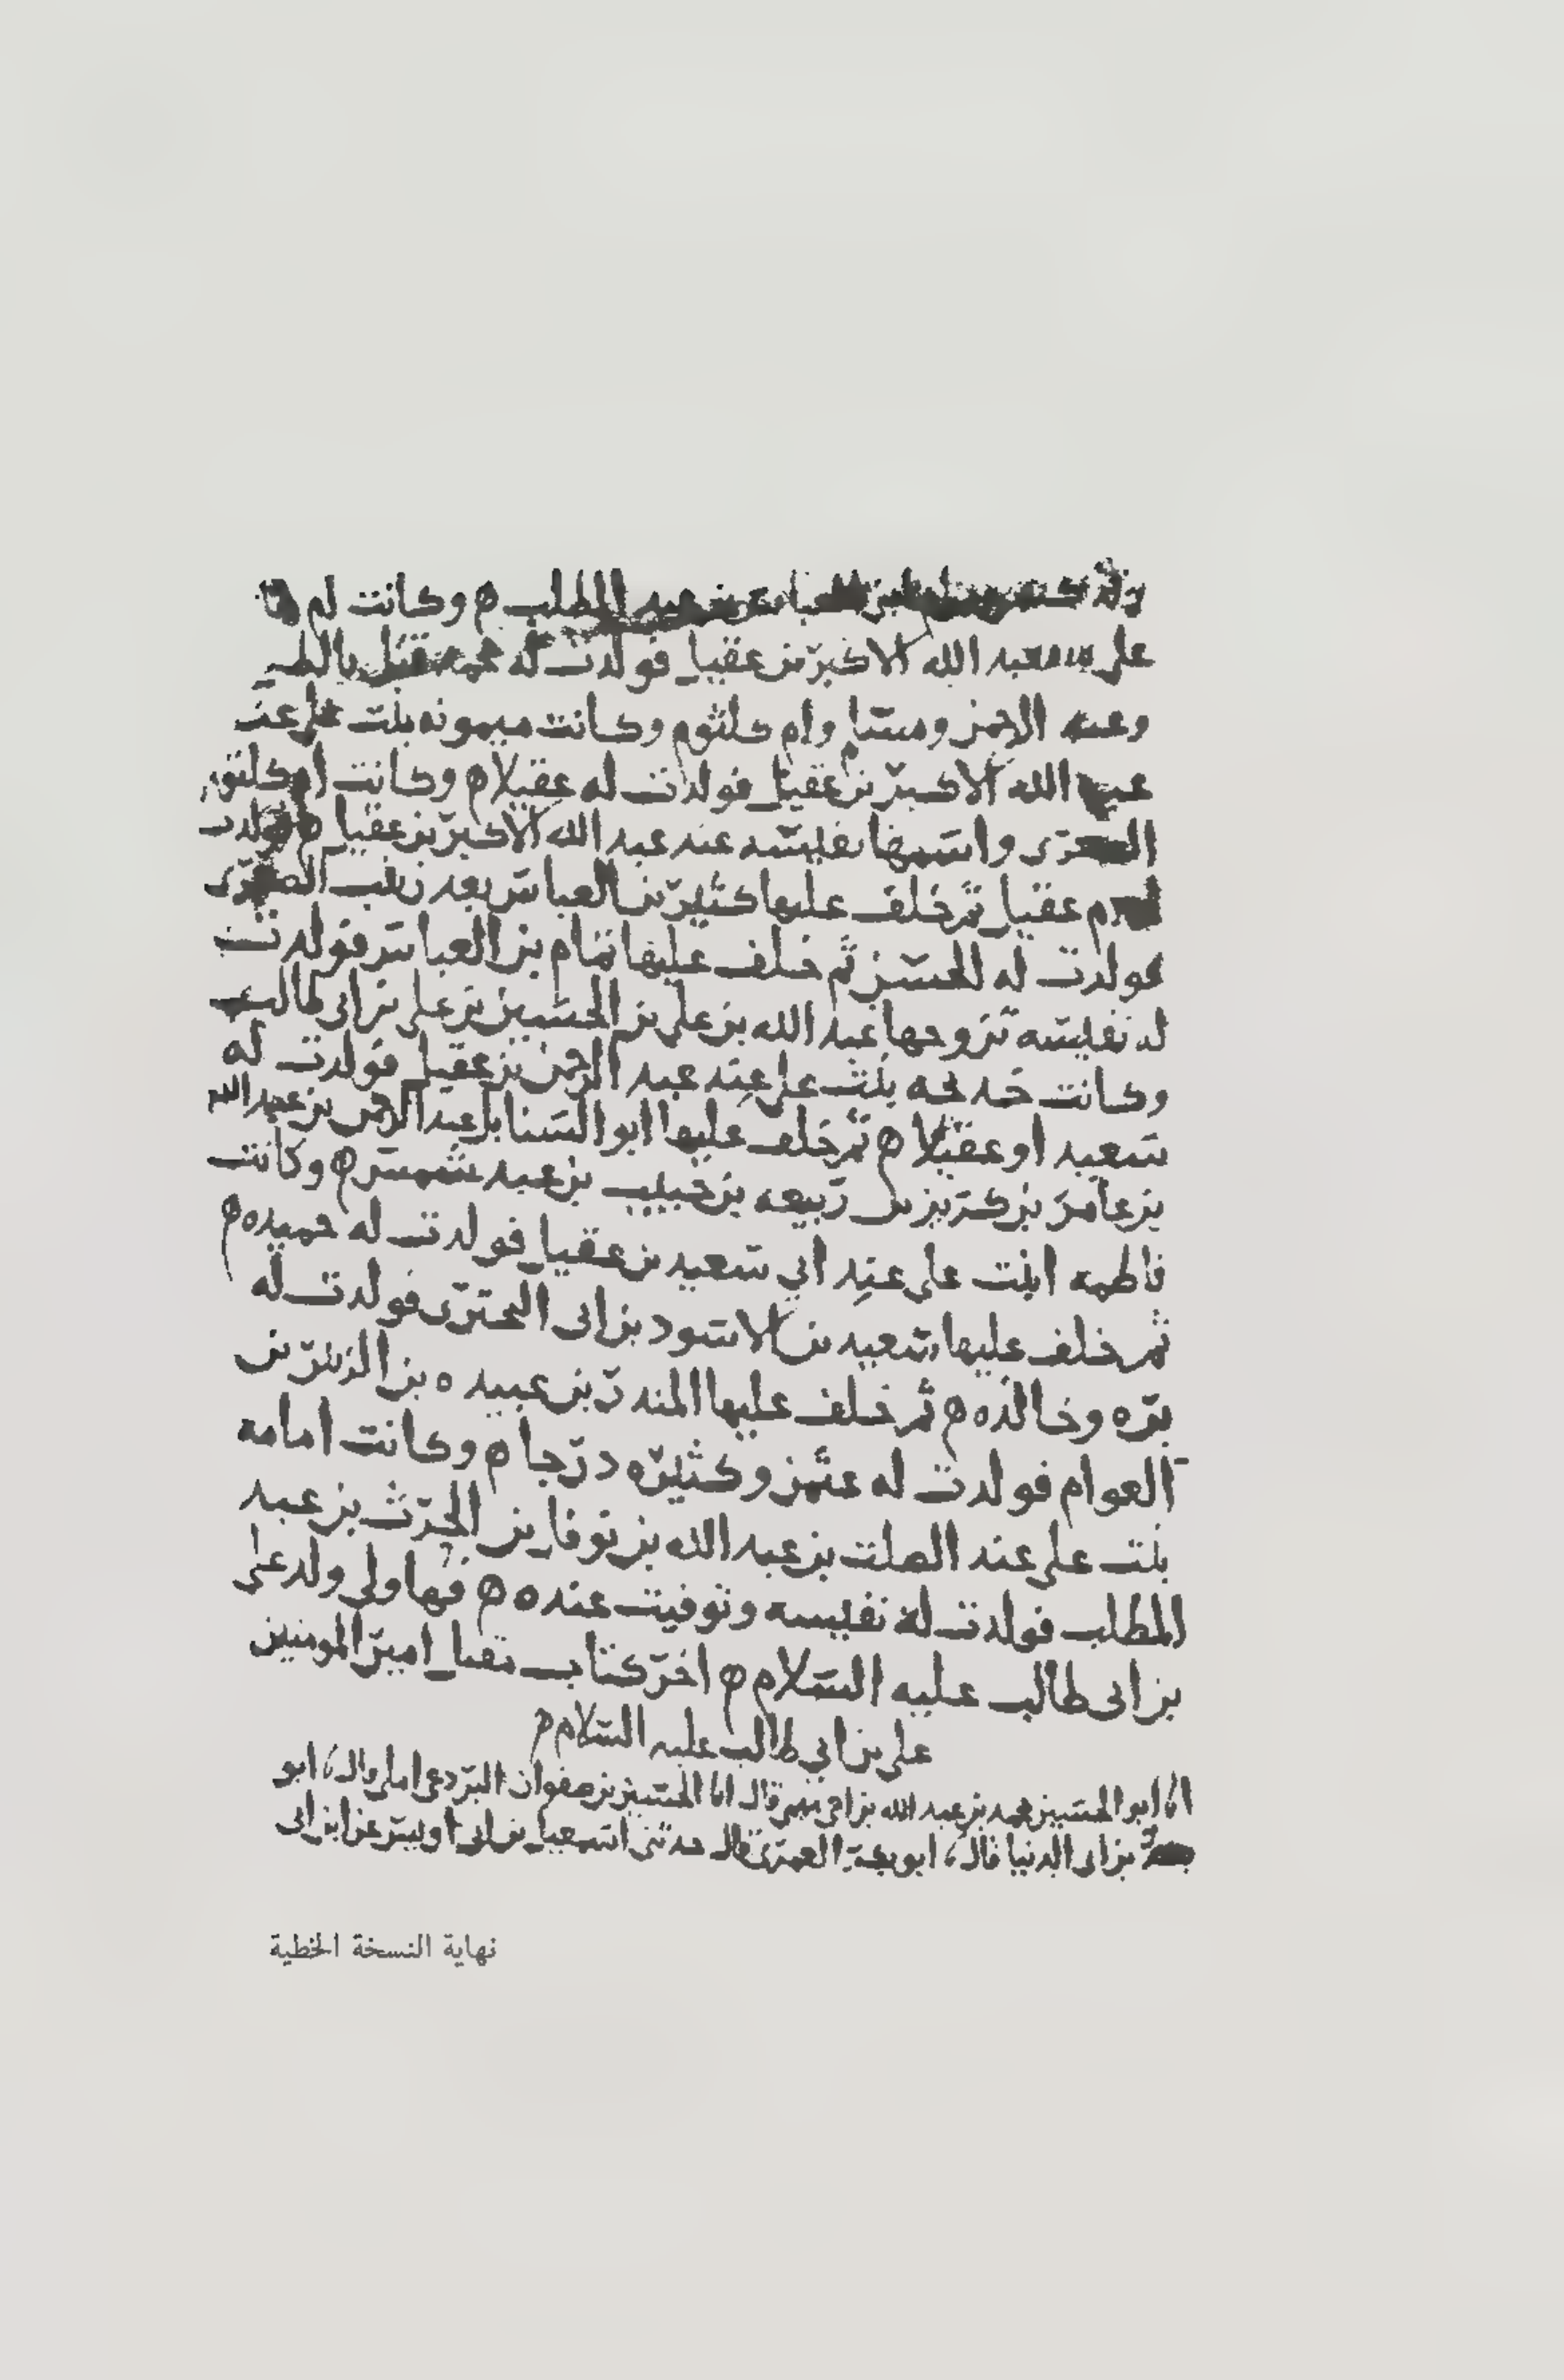 عبد المطلب ه وكانت
على عبد الله الاكبر بن عقيل فولدت له محمد قتل بالطف
وعبد الرحمن ومسلما وام كلثوم وكانت ميمونه بنت على عند
عبد الله الاكبر بن عقيل فولدت له عقيلا ه وكانت ام كلثوم
الصغرى واسمها نفيسه عند عبد الله الاكبر بن عقيل ه فولدت
ام عقيل ثم خلف عليها كثير بن العباس بعد زينب الصغرى
فولدت له الحسن ثم خلف عليها تمام بن العباس فولدت
له نفيسه تزوجها عبد الله بن على بن الحسين بن على بن ابى طالب
وكانت خديجه بنت على عند عبد الرحمن بن عقيل فولدت له
سعيد او عقيلا ه ثم خلف عليها ابو السنابل عبد الرحمن بن عبد الله
بن عامر بن كريز بن ربيعه بن حبيب بن عبد شمس ه وكانت
فاطمه ابنت على عند ابي سعيد بن عقيل فولدت له حميده ه
ثم خلف عليها سعيد بن الاسود بن ابى البحترى فولدت له
بره وخالده ه ثم خلف عليها المنذر بن عبيده بن الزبير بن
العوام فولدت له عثمن وكثيره درجا ه وكانت امامه
بنت على عند الصلت بن عبد الله بن نوفل بن الحرث بن عبد
المطلب فولدت له نفيسه وتوفيت عنده ه فهاولى ولد على
بن ابى طالب عليه السلام ه اخر كتاب مقتل امير المومنين
على بن ابي طالب عليه السلام ه
انا ابو الحسين محمد بن عبد الله بن اخى ميمى قال انا الحسين بن صفوان البردعى املى قال ابو
بكر بن ابى الدنيا قال ابو العمرى قال حدثنى اسمعيل بن ابى اويس عن ابن ابى
نهاية النسخة الخطية